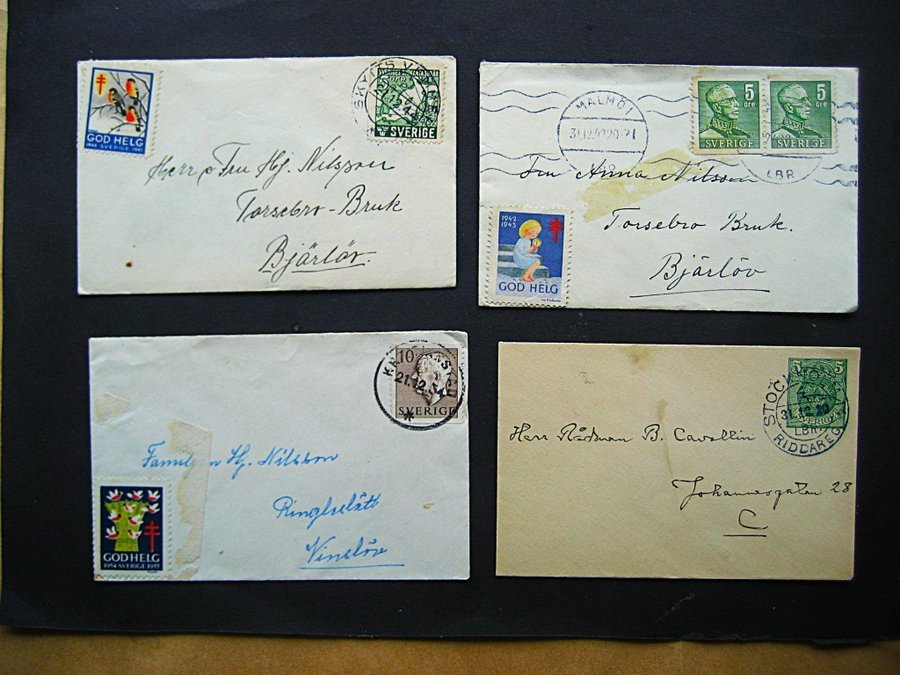 GOD HELG
1944 SVERIGE 1945
SVERIGE
Herr o Fru Hj. Nilsson
Torsebro-Bruk
Bjärlöv.
MALMÖ 1
31.12.42 20-21
5 5
ÖRE ÖRE
SVERIGE SVERIGE
LBR
Fru Anna Nilsson
Torsebro Bruk.
Bjärlöv
1942
1943
GOD HELG
10
21.12.54
SVERIGE
Familjen Hj. Nilsson
Vinslöv
GOD HELG
1954 SVERIGE 1955
5 5
STOCKHOLM
LBR
RIDDAREG
Herr Rådman B. Cavallin
Johannesgatan 28
C